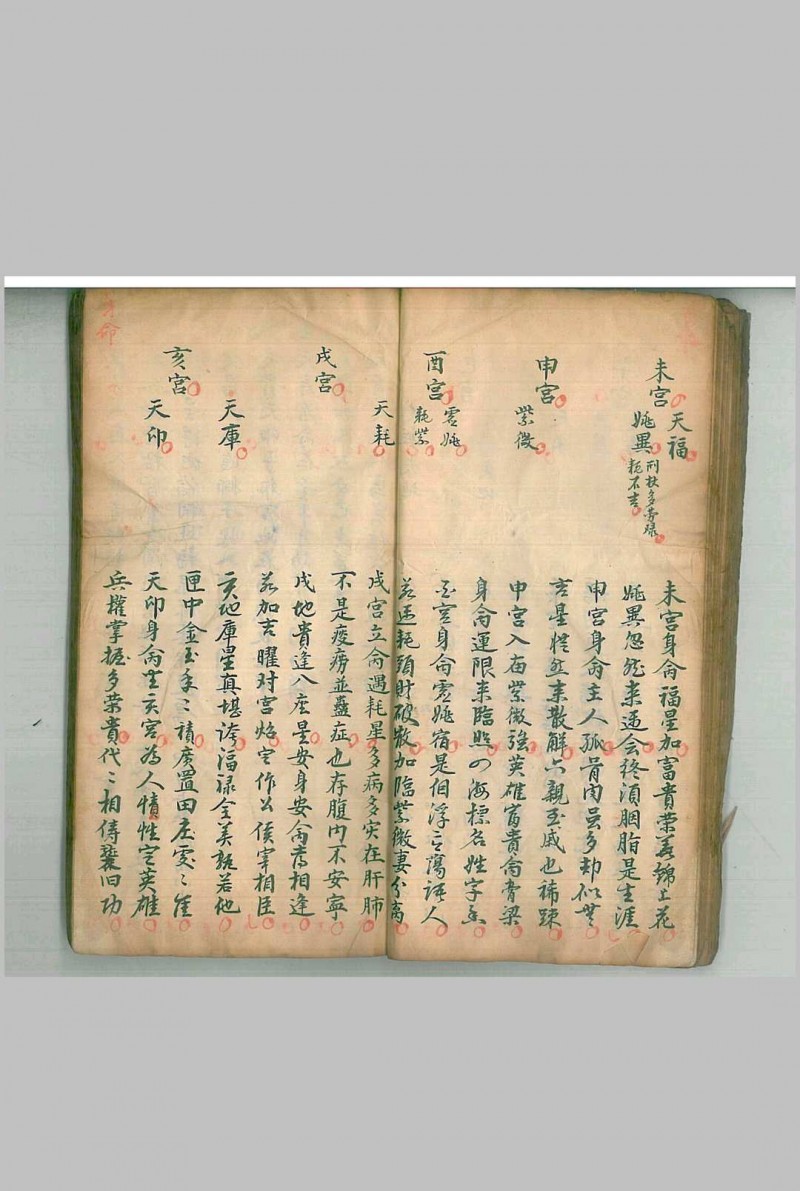 未宮
天福
姚異
刑杖多勞碌
耗不吉
申宮
紫微
酉宮
虛姚
耗紫
未宮身命福星加富貴榮華錦上花
姚異忽然来逼会終須胭脂是生涯
申宮身命主人孤骨肉虽多却似無
吉星縱然来散解六親至戚也稀踈
申宮入庙紫微強英雄富貴命膏梁
身命運限来臨照四海標名姓字香
酉宮身命虛姚宿是個浮言蕩語人
若逢耗頭財破敗加臨紫微妻分离
天耗
戌宮
天庫
亥宮
天印
戌宮立命遇耗星多病多灾在肝肺
不是疫癆並蠱症也存腹内不安寧
戌地貴逢八座星安身安命喜相逢
若加吉曜对宮炤定作公侯宰相臣
亥地庫星真堪誇福禄全美説若他
匣中金玉年〻積廣置田庄雯〻佳
天印身命坐亥宮為人憒性定英雄
兵權掌握多荣貴代〻相傳襲旧功
命